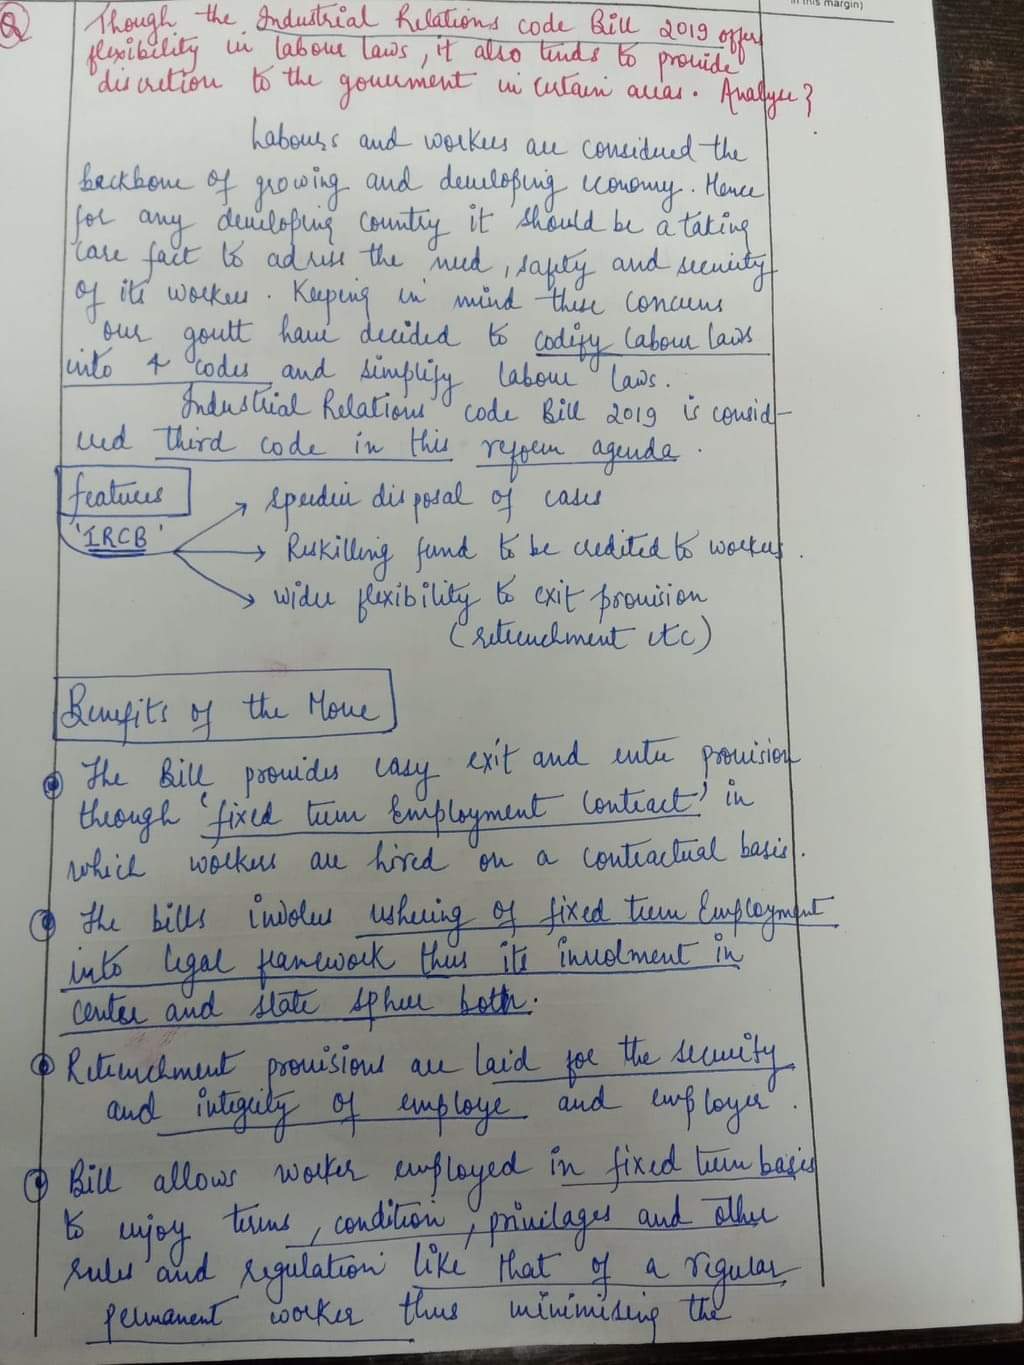 in this margin)
Q
Though the Industrial Relations code Bill 2019 offers
flexibility in labour laws, it also tends to provide
discretion to the government in certain areas. Analyse?
Labours and workers are considered the
backbone of growing and developing economy. Hence
for any developing country it should be a taking
care fact to adress the need, safety and security
of its workers. Keeping in mind these concerns
our govtt have decided to codify labour laws
into 4 codes and simplify labour laws.
Industrial Relations code Bill 2019 is consid-
ered third code in this reform agenda.
features
'IRCB'
speedier disposal of cases
Reskilling fund to be credited to workers.
wider flexibility to exit provision
(retrenchment etc)
Benefits of the Move
The Bill provides easy exit and enter provision
through 'fixed term Employment Contract' in
which workers are hired on a contractual basis.
The bills involves ushering of fixed term Employment
into legal framework thus its involment in
center and state sphere both.
Retrenchment provisions are laid for the security
and integrity of employe and employer.
Bill allows worker employed in fixed term basis
to enjoy terms, condition, privilages and other
rules and regulation like that of a regular
permanent worker thus minimising the